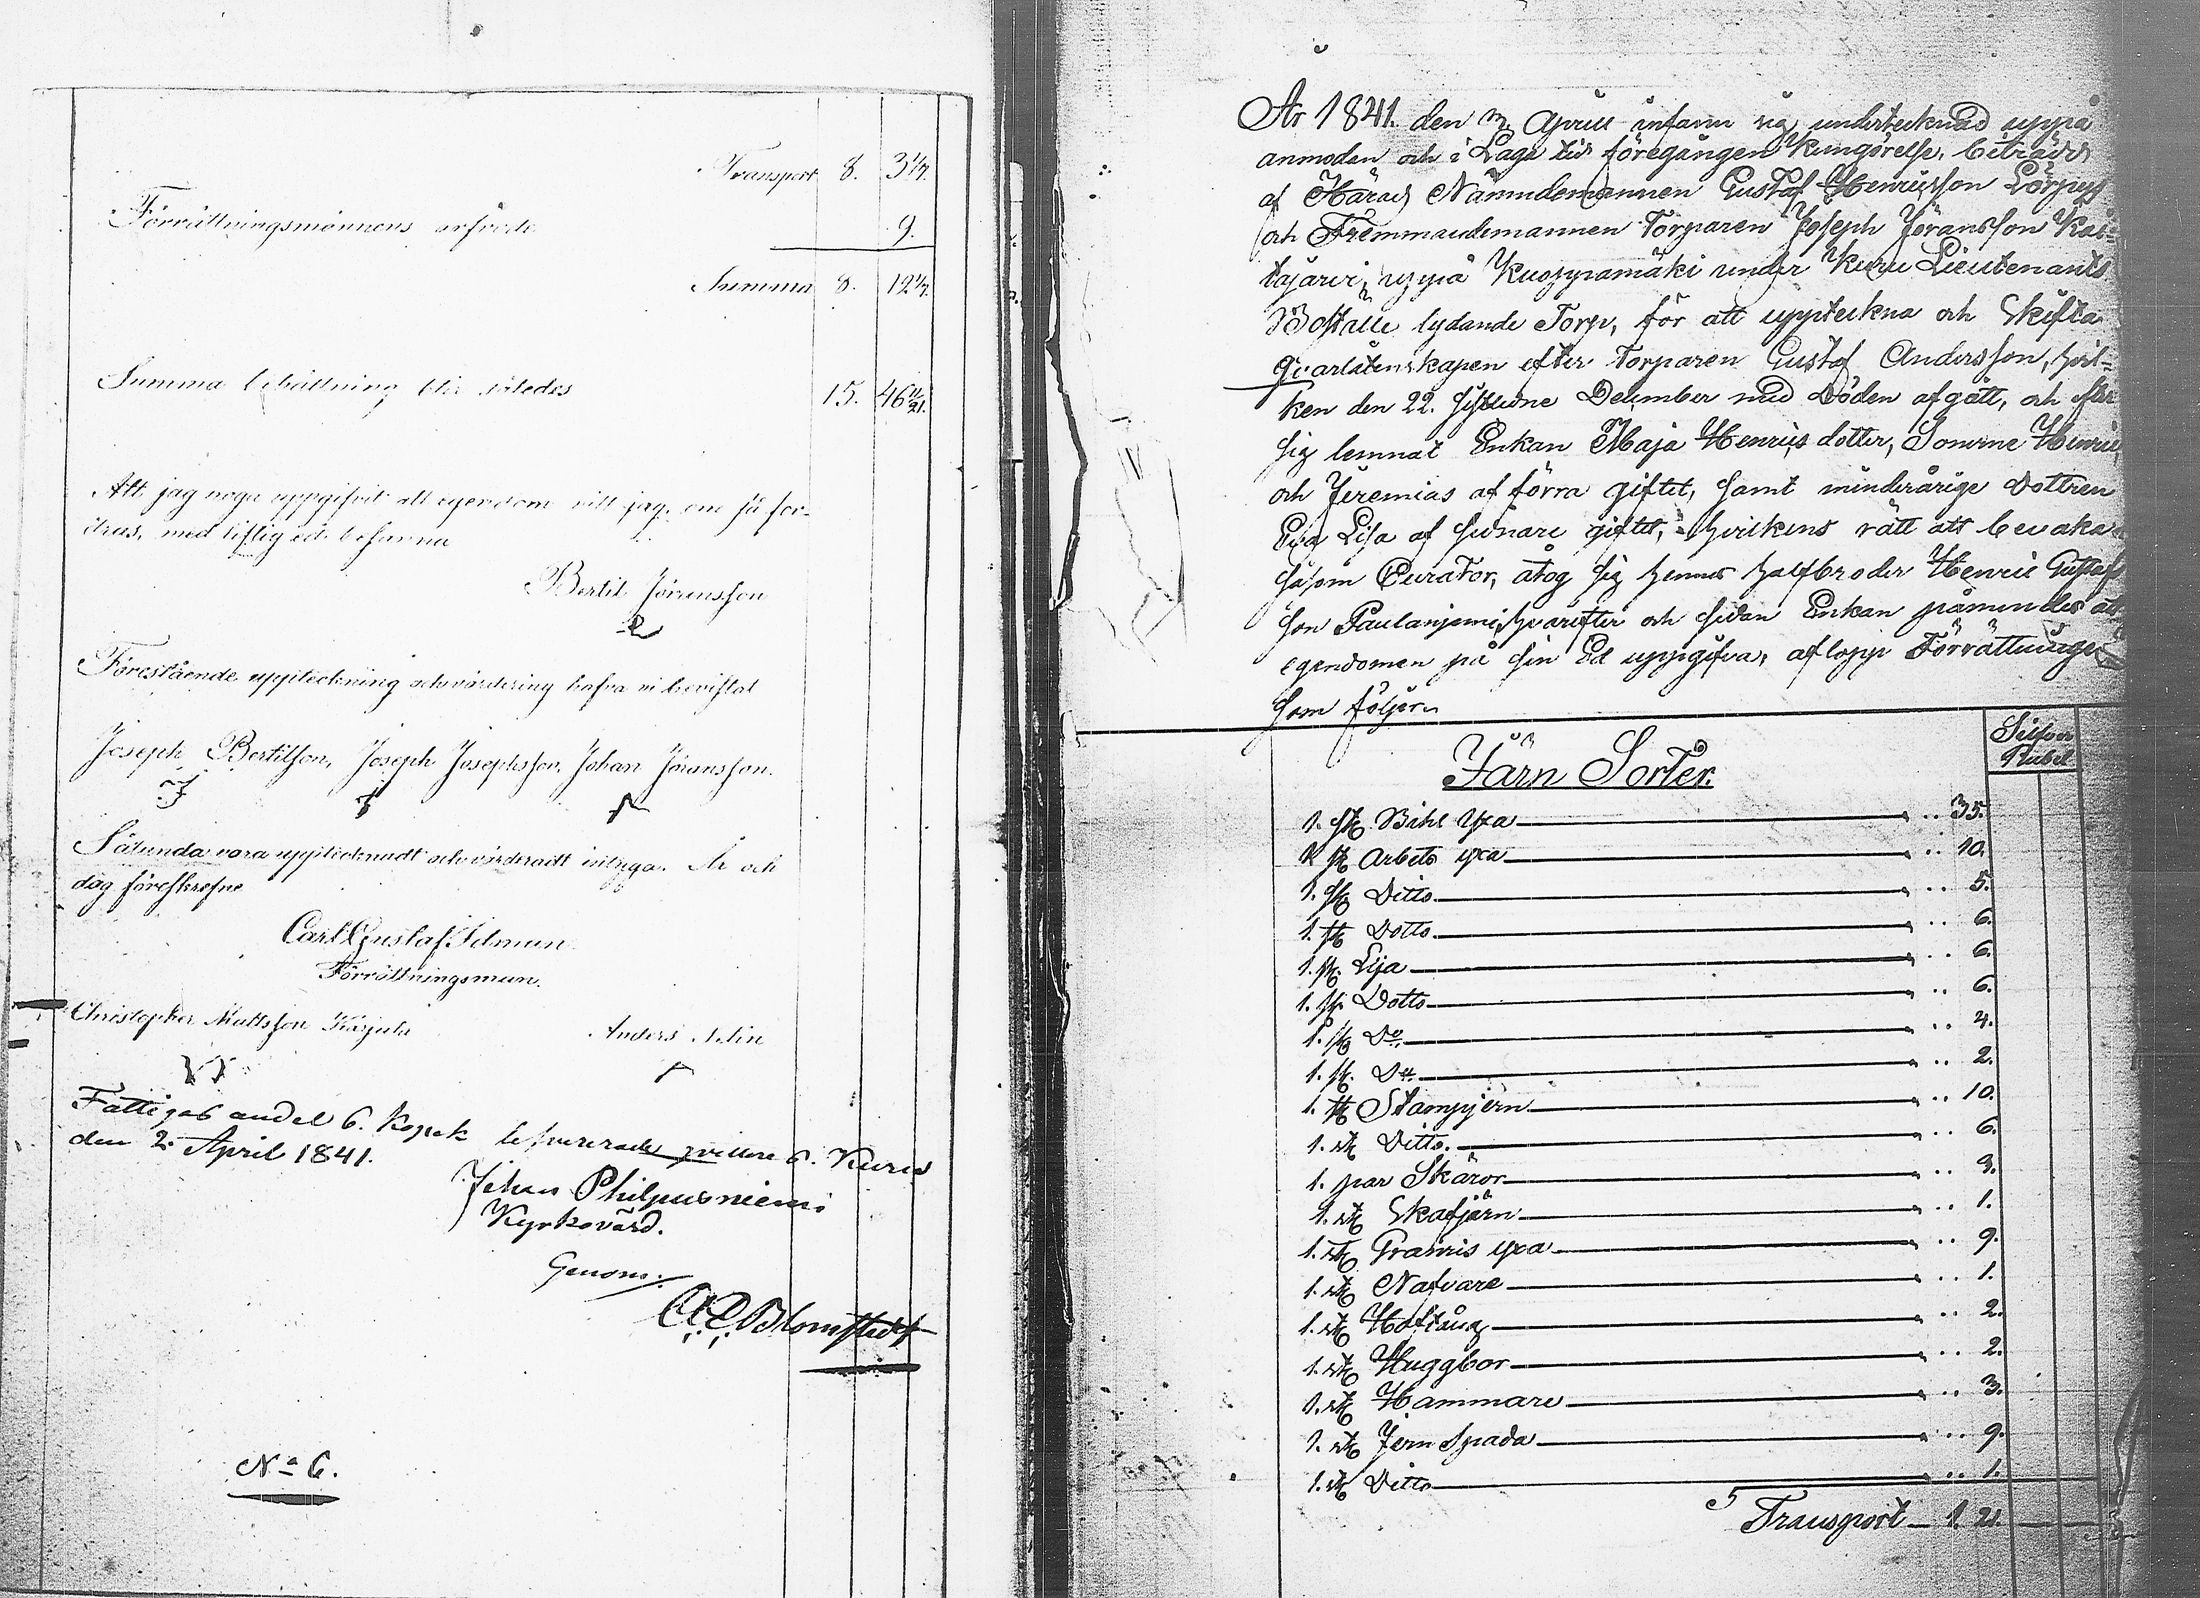 Transport 8. 3 1/7.
Förrättningsmännens arfvode 9.
Summa 8. 12 1/7.
Summa behållning blir således 15. 46 11/21.
Att jag noga uppgifvit all egendom vill jag, om så for-
dras, med liflig ed besanna
Bertil Jöransson
Förestående uppteckning och värdering hafva vi bevistat
Joseph Bertilson, Joseph Josephsson, Johan Jöransson.
Sålunda vara upptecknadt och värderadt intyga. År och
dag föreskrefne
Carl Gustaf
Förrättningsman.
Christopher Mattsson Anders
Fattigas andel 6. Kopek lefvererade 6. Kuru
den 2. April 1841.
Johan Philpusniemi
Kyrkovärd.
Genom:
Blomstedt
No 6.
År 1841. den April infann sig undertecknad uppå
anmodan och i Laga tid föregången Kungörelse, biträdd
af Härads Nämndemannen Gustaf Henricsson
och Fremmandemannen Torparen Joseph Jöransson Koi-
tajärvi, uppå Kuoppamäki under Kuru Lieutenants
Boställe lydande Torp, för att uppteckna och Skifta
qvarlåtenskapen efter Torparen Gustaf Andersson, hvil-
ken den 22. sistledne December med Döden afgått, och efter
sig lemnat Enkan Maja Henrics dotter, Sönerne Henric
och Jeremias af förra giftet, samt minderårige Dottren
Eva Lisa af sednare giftet, hvilkens rätt att bevaka
såsom Curator, åtog sig hennes halfbroder Henric Gustaf
son Paulaniemi, hvarefter och sedan Enkan påmindes att
egendomen på sin Ed uppgifva, aflopp Förrättningen
som följer.
Silfver
Rubel
Järn Sorter.
1. st Bihl Yxa 35.
1 st Arbets yxa 10.
1. st Ditto 5.
1. st Dotto 6.
1. st. Lija 6.
1. st. Dotto 6.
1. st Do 4.
1. st. Do 2.
1. st Stampjern 10.
1. st Ditto. 6.
1. par Skäror 3.
1. st Skafjärn 1.
1. st yxa 9.
1. st Nafvare 1.
1. st Hoftång 2.
1. st Huggbor 2.
1. st Hammare 3.
1. st Jern Spada 9.
1. st Ditto 1.
Transport 1. 21.